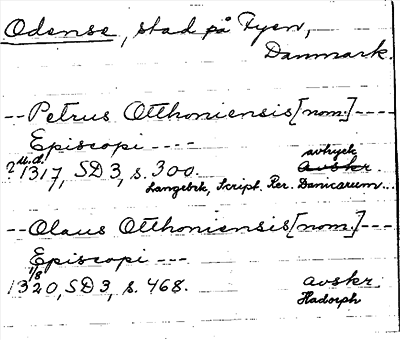 Odense, stad på Fyen,
Danmark.
--Petrus Otthoniensis [nom.]----
Episcopi ----
avtryck
? u.d. 1317, SD 3, s. 300. avskr.
Langebek, Script. Rer. Danicarum...
--Olaus Otthoniensis [nom.]----
Episcopi ---
1/8
1320, SD 3, s. 468. avskr.
Hadorph